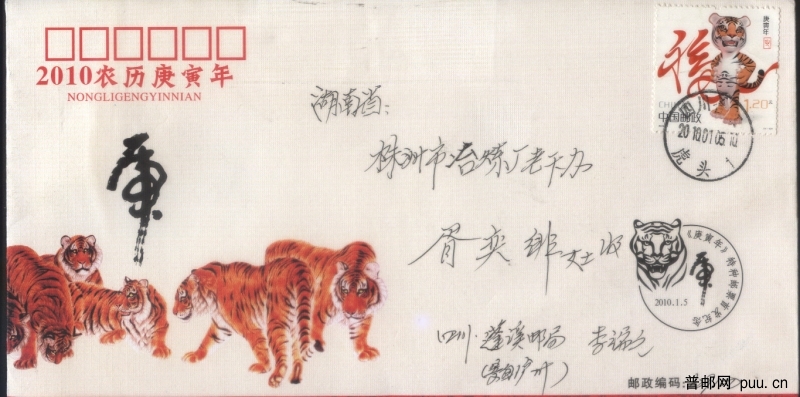 2010农历庚寅年
NONGLIGENGYINNIAN
虎
庚寅年
福
中国邮政
CHINA
1.20元
四川
2010.01.05.10
虎头 1
湖南省：
株洲市冶炼厂老干办
胥奕 女士收
《庚寅年》特种邮票首发纪念
虎
2010.1.5
四川·蓬溪邮局 李
邮政编码:
普邮网 puu.cn